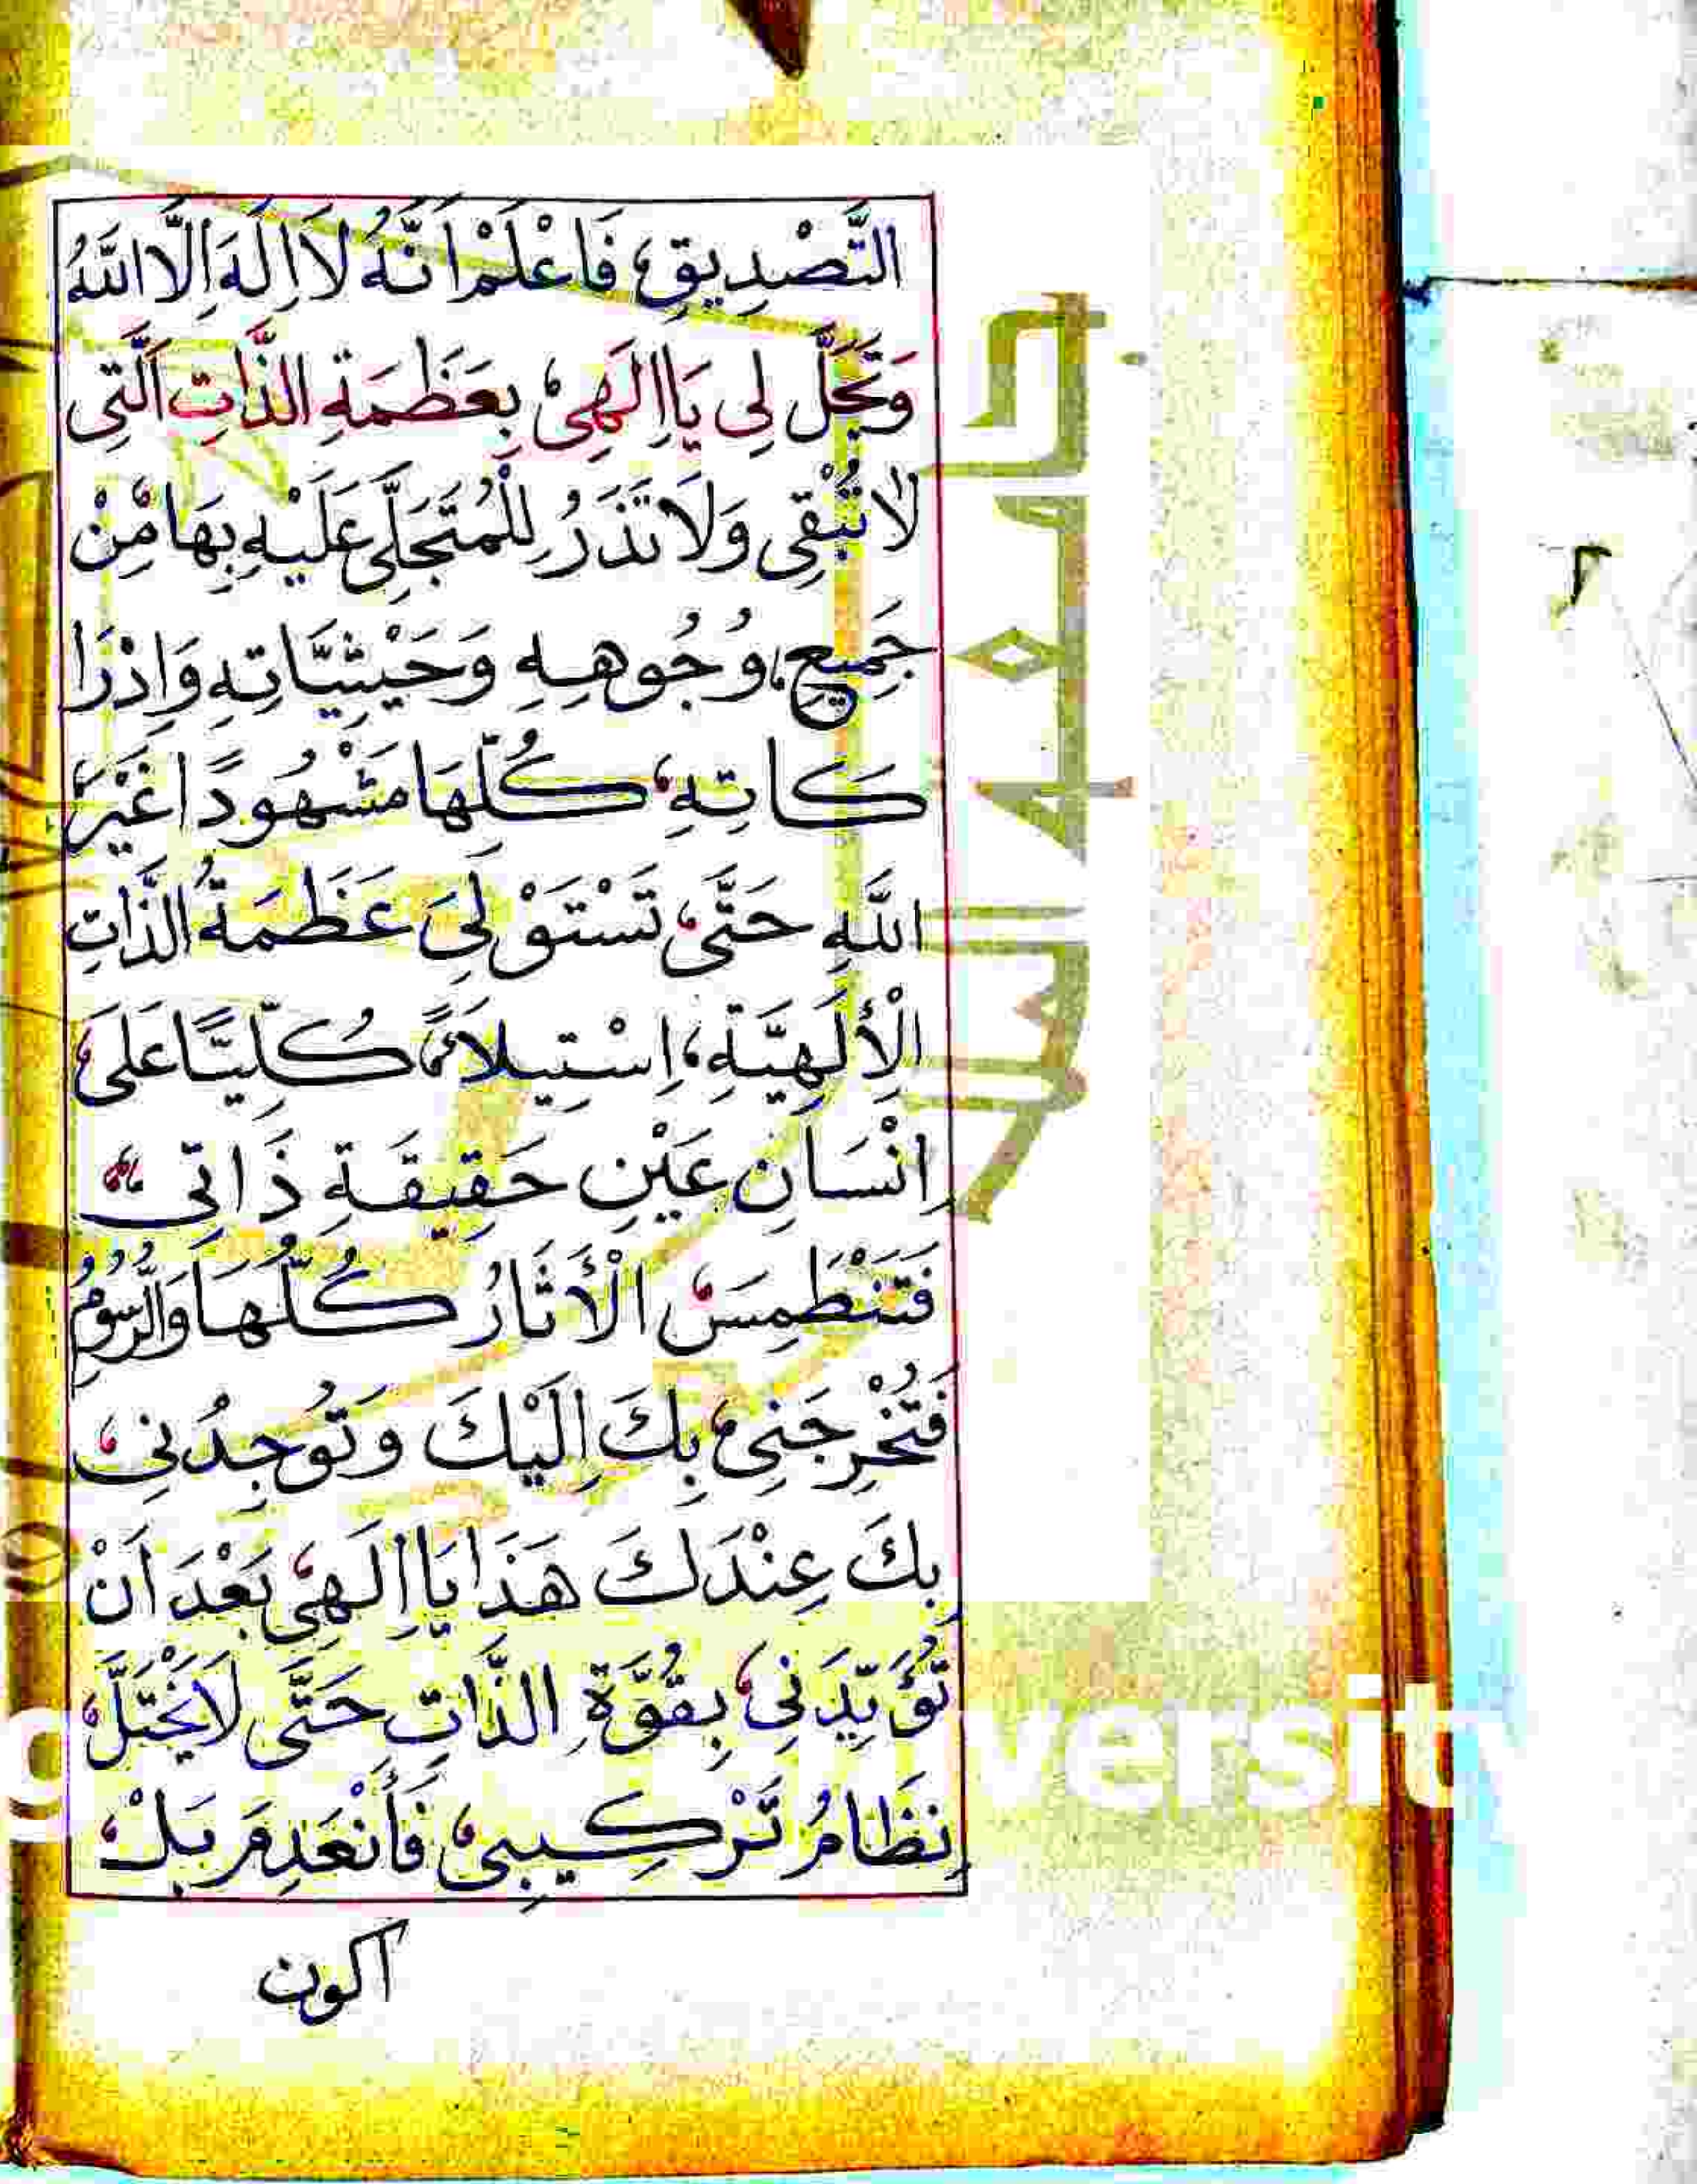 التَّصْدِيقِ، فَاعْلَمْ اَنَّهُ لَا اِلَهَ اِلَّا اللَّهُ
وَتَجَلَّ لِى يَا اِلَهِى بِعَظَمَةِ الذَّاتِ الَّتِى
لَا تُبْقِى وَلَا تَذَرُ لِلْمُتَجَلَّى عَلَيْهِ بِهَا مِنْ
جَمِيعِ وُجُوهِهِ وَحَيْثِيَّاتِهِ وَاِدْرَا
كَاتِهِ كُلِّهَا مَشْهُودًا غَيْرَ
اللَّهِ حَتَّى تَسْتَوْلِىَ عَظَمَةُ الذَّاتِ
الْاِلَهِيَّةِ، اِسْتِيلَاءً كُلِّيًّا عَلَى
اِنْسَانِ عَيْنِ حَقِيقَةِ ذَاتِى
فَتَنْطَمِسَ الْأَثَارُ كُلُّهَا وَالرُّسُومُ
فَتُخْرِجَنِى بِكَ اِلَيْكَ وَتُوجِدُنِى
بِكَ عِنْدَكَ هَذَا يَا اِلَهِى بَعْدَ اَنْ
تُؤَيِّدَنِى بِقُوَّةِ الذَّاتِ حَتَّى لَا يَخْتَلَّ
نِظَامُ تَرْكِيبِى فَأَنْعَدِمَ بَلْ
اكون
جامعة الملك
versity